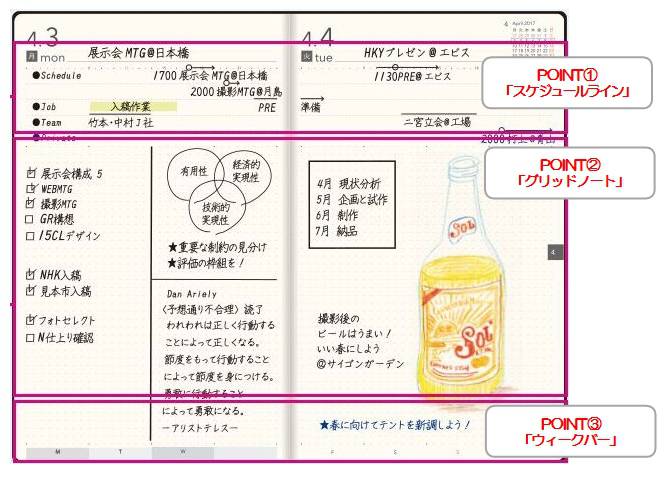 4.3
月 mon
展示会 MTG@日本橋
●Schedule
1700 展示会 MTG@日本橋
2000 撮影MTG@月島
●Job
入稿作業
PRE
●Team
竹本・中村 J社
●Private
展示会構成 5
WEBMTG
撮影MTG
GR構想
15CLデザイン
NHK入稿
見本市入稿
フォトセレクト
N仕上り確認
有用性
経済的
実現性
技術的
実現性
★重要な制約の見分け
★評価の枠組を!
Dan Ariely
〈予想通り不合理〉読了
われわれは正しく行動する
ことによって正しくなる。
節度をもって行動すること
によって節度を身につける。
勇敢に行動すること
によって勇敢になる。
ーアリストテレスー
M T W
4.4
火 tue
HKYプレゼン@エビス
4 April 2017
1130PRE@エビス
準備
二宮立会@工場
2000 打上@青山
4月 現状分析
5月 企画と試作
6月 制作
7月 納品
SOL
SOL
撮影後の
ビールはうまい!
いい春にしよう
@サイゴンガーデン
4
★春に向けてテントを新調しよう!
F S S
POINT①
「スケジュールライン」
POINT②
「グリッドノート」
POINT③
「ウィークバー」